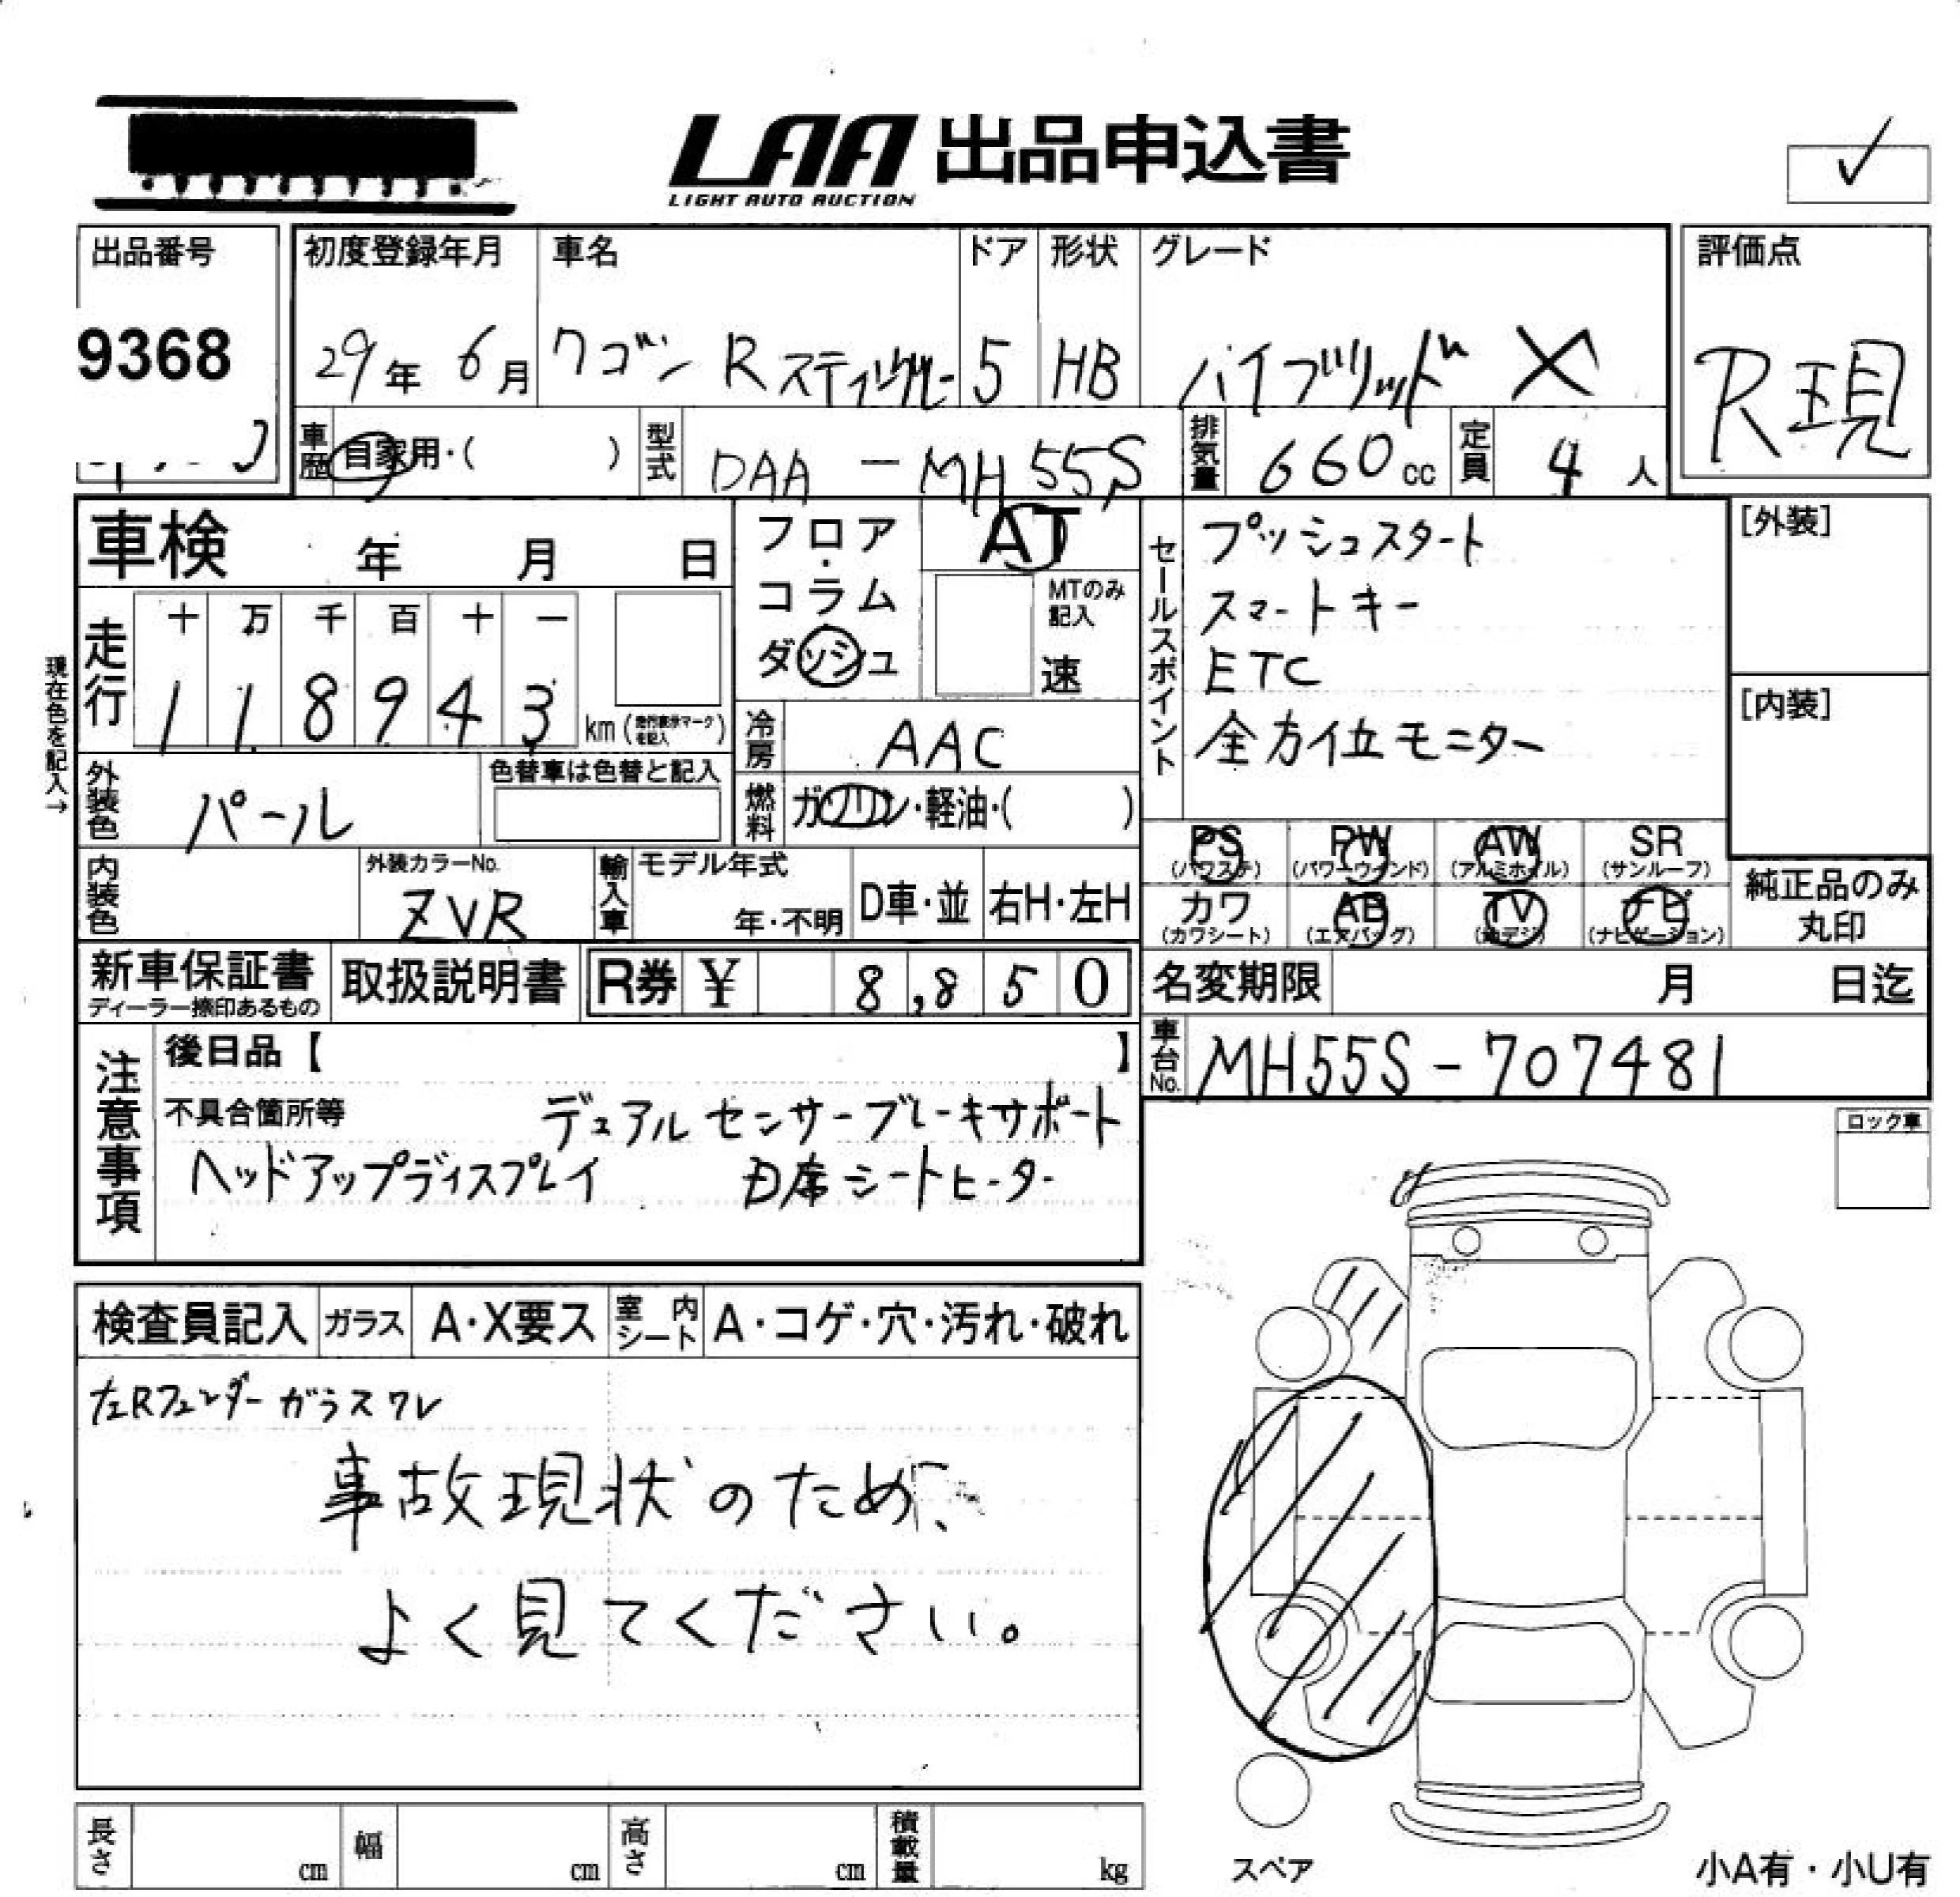 LAA 出品申込書
LIGHT AUTO AUCTION
✓
出品番号
9368
初度登録年月
29年 6月
車名
ワゴンRスティングレー
ドア
5
形状
HB
グレード
ハイブリッド X
評価点
R現
車歴 自家用・( )
型式 DAA-MH55S
排気量 660cc
定員 4人
車検 年 月 日
フロア・コラム
ダッシュ
AT
MTのみ記入
速
セールスポイント
プッシュスタート
スマートキー
ETC
全方位モニター
[外装]
[内装]
現在色を記入→
走行
十 万 千 百 十 一
1 1 8 9 4 3 km (走行表示マークを記入)
冷房 AAC
燃料 ガソリン・軽油・( )
外装色 パール
色替車は色替と記入
PS (パワステ)
PW (パワーウインド)
AW (アルミホイル)
SR (サンルーフ)
カワ (カワシート)
AB (エアバッグ)
TV (地デジ)
ナビ (ナビゲーション)
純正品のみ
丸印
内装色
外装カラーNo.
ZVR
輸入車
モデル年式
年・不明
D車・並
右H・左H
新車保証書
ディーラー捺印あるもの
取扱説明書
R券 ¥ 8,850
名変期限 月 日迄
車台No. MH55S-707481
注意事項
後日品【 】
不具合箇所等 デュアルセンサーブレーキサポート
ヘッドアップディスプレイ D席シートヒーター
ロック車
検査員記入
ガラス
A・X要ス
室内シート
A・コゲ・穴・汚れ・破れ
左Rフェンダーガラスワレ
事故現状のため、
よく見てください。
長さ cm
幅 cm
高さ cm
積載量 kg
スペア
小A有・小U有